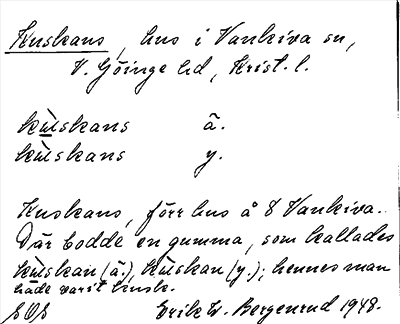 Kuskans, hus i Vankiva sn,
V. Göinge hd, Krist. l.
kùskans ä.
kùskans y.
Kuskans, förr hus å 8 Vankiva.
Där bodde en gumma, som kallades
kùskan (ä.), kùskan (y.); hennes man
hade varit kusk.
Erik W. Bergenrud 1948.